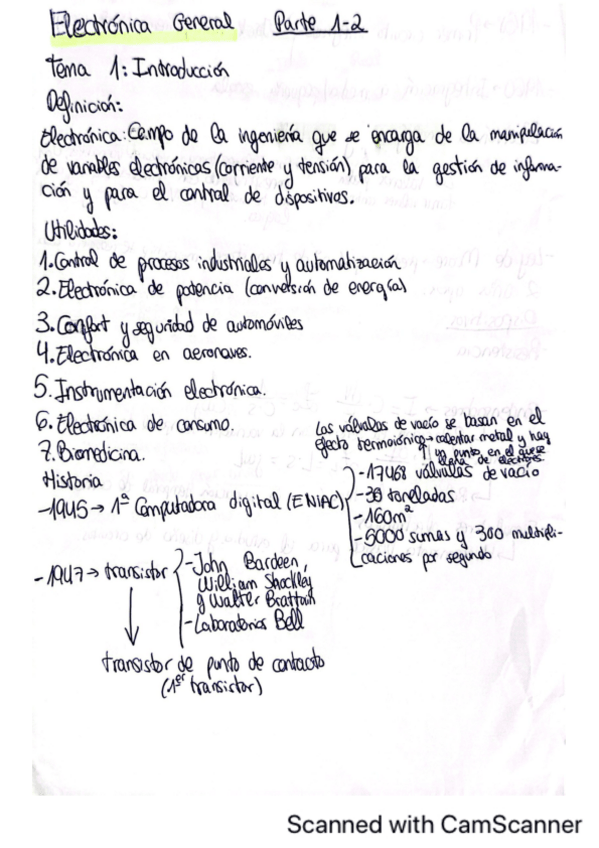 Electrónica General Parte 1-2
Tema 1: Introducción
Definición:
Electrónica: Campo de la ingeniería que se encarga de la manipulación
de variables electrónicas (corriente y tensión), para la gestión de informa-
ción y para el control de dispositivos.
Utilidades:
1. Control de procesos industriales y automatización
2. Electrónica de potencia (conversión de energía)
3. Confort y seguridad de automóviles
4. Electrónica en aeronaves.
5. Instrumentación electrónica.
6. Electrónica de consumo.
7. Biomedicina.
Las válvulas de vacío se basan en el
efecto termoiónico → calentar metal y hay
un punto en el que se
llena de electrones.
Historia
-1945 → 1ª Computadora digital (ENIAC)
-17468 válvulas de vacío
-30 toneladas
-160m²
-5000 sumas y 300 multipli-
caciones por segundo
-1947 → transistor
-John Bardeen,
William Shockley
y Walter Brattain
-Laboratorios Bell
transistor de punto de contacto
(1er transistor)
Scanned with CamScanner